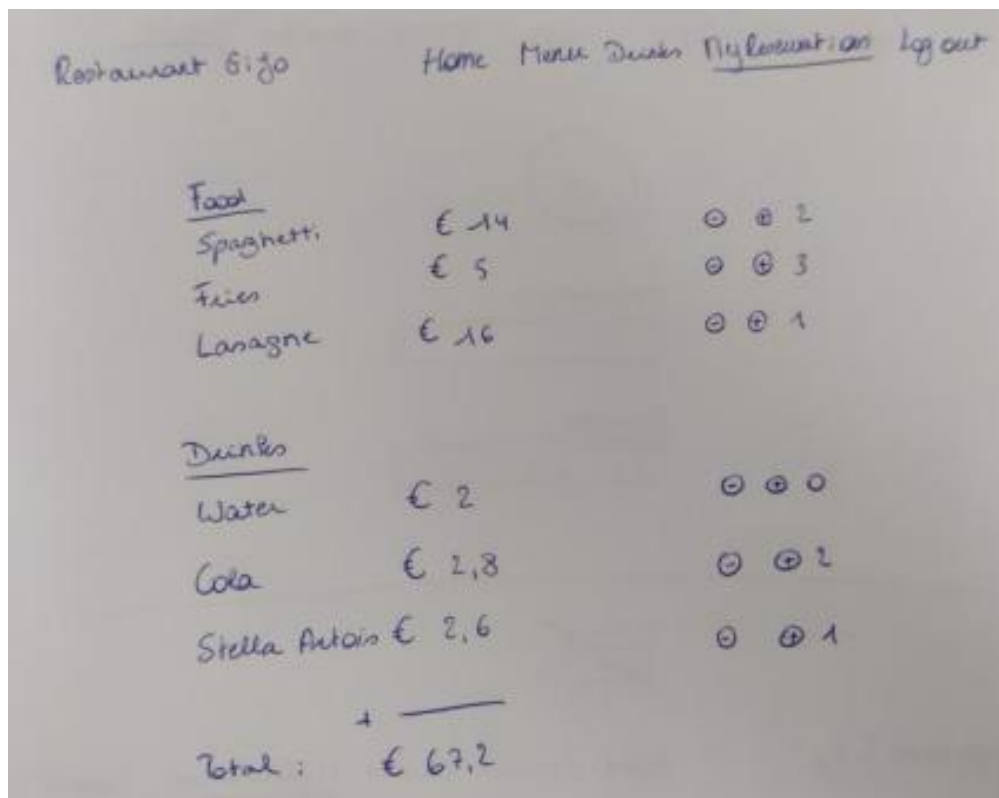 Restaurant Gijo Home Menu Drinks My Reservation Log out
Food
Spaghetti € 14 - + 2
Fries € 5 - + 3
Lasagne € 16 - + 1
Drinks
Water € 2 - + 0
Cola € 2,8 - + 2
Stella Artois € 2,6 - + 1
+
Total: € 67,2